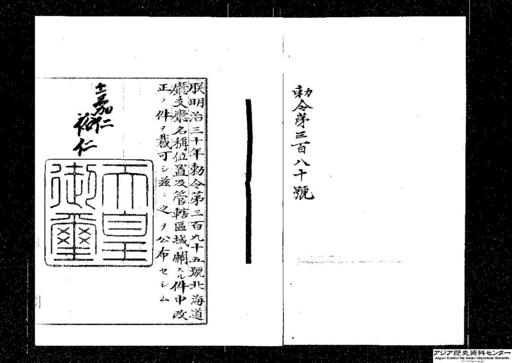 勅令第三百八十號
朕明治三十年勅令第三百九十五號北海道
廳支廳名稱位置及管轄區域ニ關スル件中改
正ノ件ヲ裁可シ茲ニ之ヲ公布セシム
嘉仁
裕仁
天皇
御璽
アジア歴史資料センター
Japan Center for Asian Historical Records